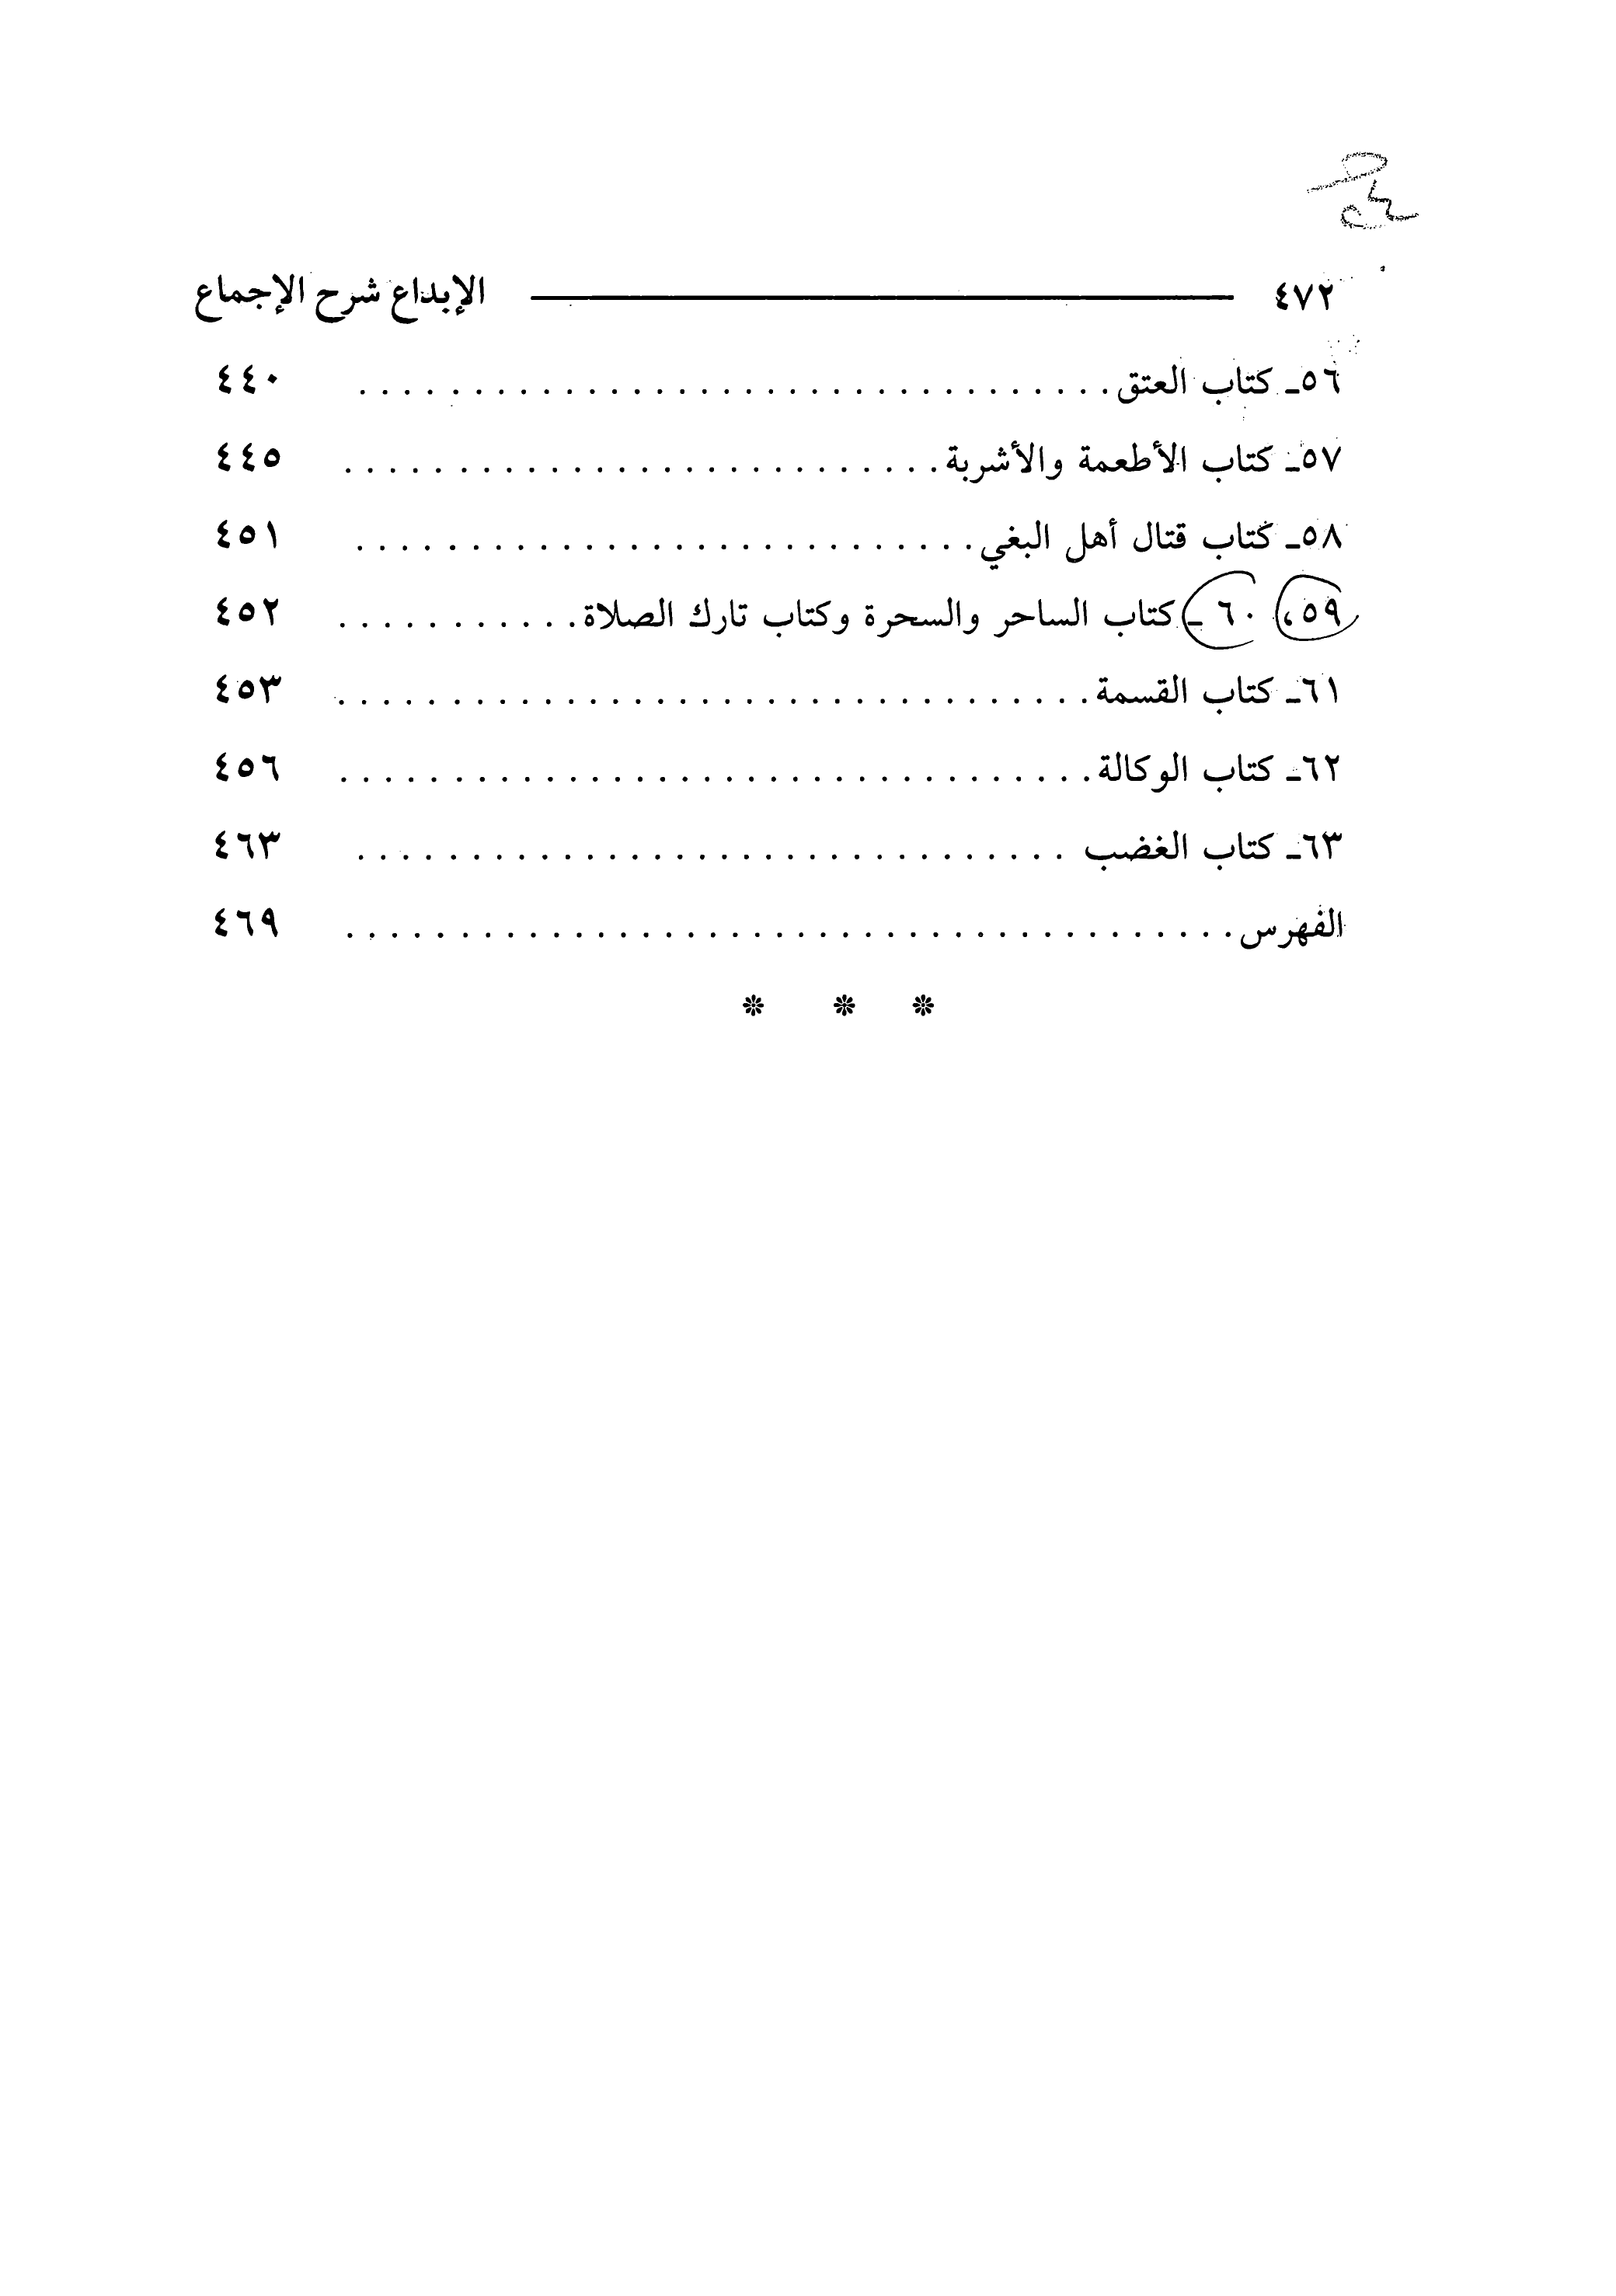 ٤٧٢ الإبداع شرح الإجماع
٥٦ـ كتاب العتق ................................. ٤٤٠
٥٧ـ كتاب الأطعمة والأشربة ........................... ٤٤٥
٥٨ـ كتاب قتال أهل البغي ........................... ٤٥١
٥٩، ٦٠ـ كتاب الساحر والسحرة وكتاب تارك الصلاة ........... ٤٥٢
٦١ـ كتاب القسمة ................................. ٤٥٣
٦٢ـ كتاب الوكالة ................................. ٤٥٦
٦٣ـ كتاب الغضب ............................... ٤٦٣
الفهرس ....................................... ٤٦٩
* * *